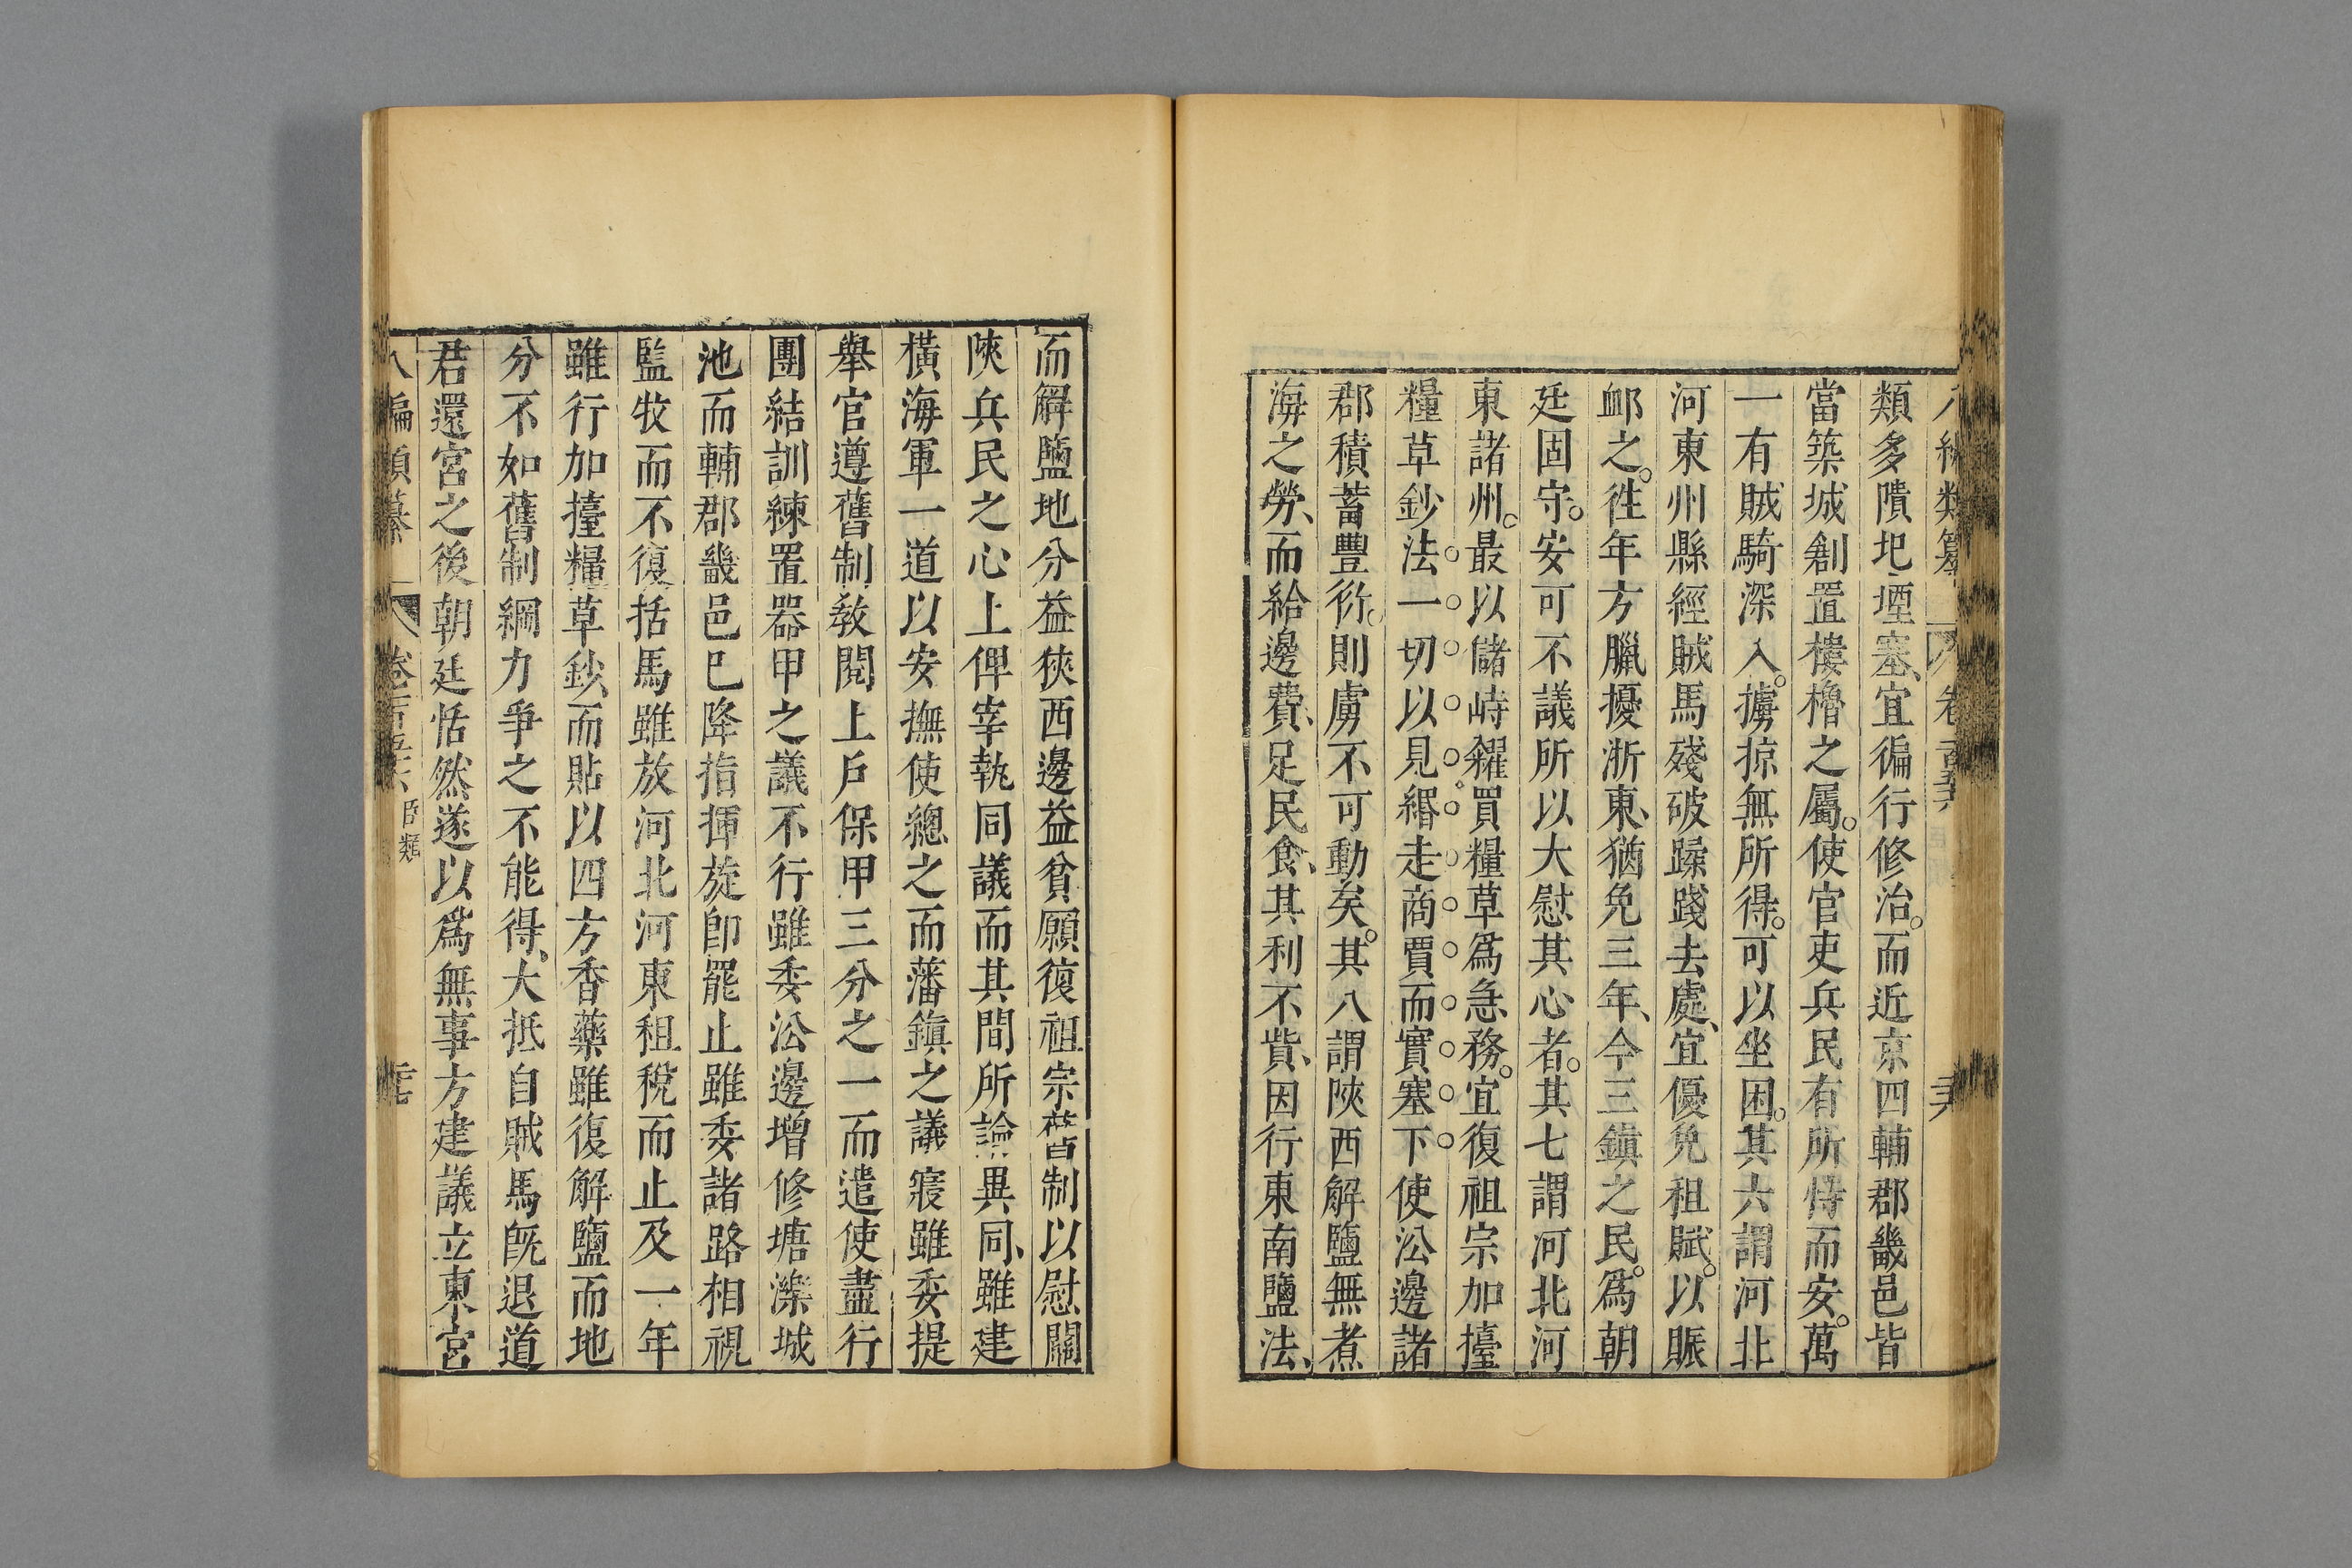 八編類纂 卷一百五十六 三六
類多隤圮堙塞、宜徧行修治。而近京四輔郡畿邑皆
當築城創置樓櫓之屬。使官吏兵民有所恃而安。萬
一有賊騎深入。擄掠無所得。可以坐困。其六謂河北
河東州縣經賊馬殘破蹂踐去處、宜優免祖賦。以賑
䘏之。徃年方臘擾浙東、猶免三年、今三鎮之民。爲朝
廷固守。安可不議所以大慰其心者。其七謂河北河
東諸州。最以儲峙糴買糧草爲急務。宜復祖宗加擡
糧草鈔法一切以見緡走商賈而實塞下使㳂邊諸
郡積蓄豐衍。則虜不可動矣。其八謂陝西解鹽無煮
海之勞、而給邊費、足民食、其利不貲、因行東南鹽法、
而解鹽地分益狹西邊益貧願復祖宗舊制以慰關
陝兵民之心上俾宰執同議而其間所論異同、雖建
橫海軍一道以安撫使總之而藩鎮之議寢雖委提
舉官遵舊制教閱上戶保甲三分之一而遣使盡行
團結訓練置器甲之議不行雖委㳂邊增修塘濼城
池而輔郡畿邑已降指揮旋卽罷止雖委諸路相視
監牧而不復括馬雖放河北河東租稅而止及一年
雖行加擡糧草鈔、而貼以四方香藥雖復解鹽而地
分不如舊制綱力爭之不能得、大抵自賊馬旣退道
君還宮之後朝廷恬然遂以爲無事方建議立東宮
八編類纂 卷一百五十六 臣類 三七